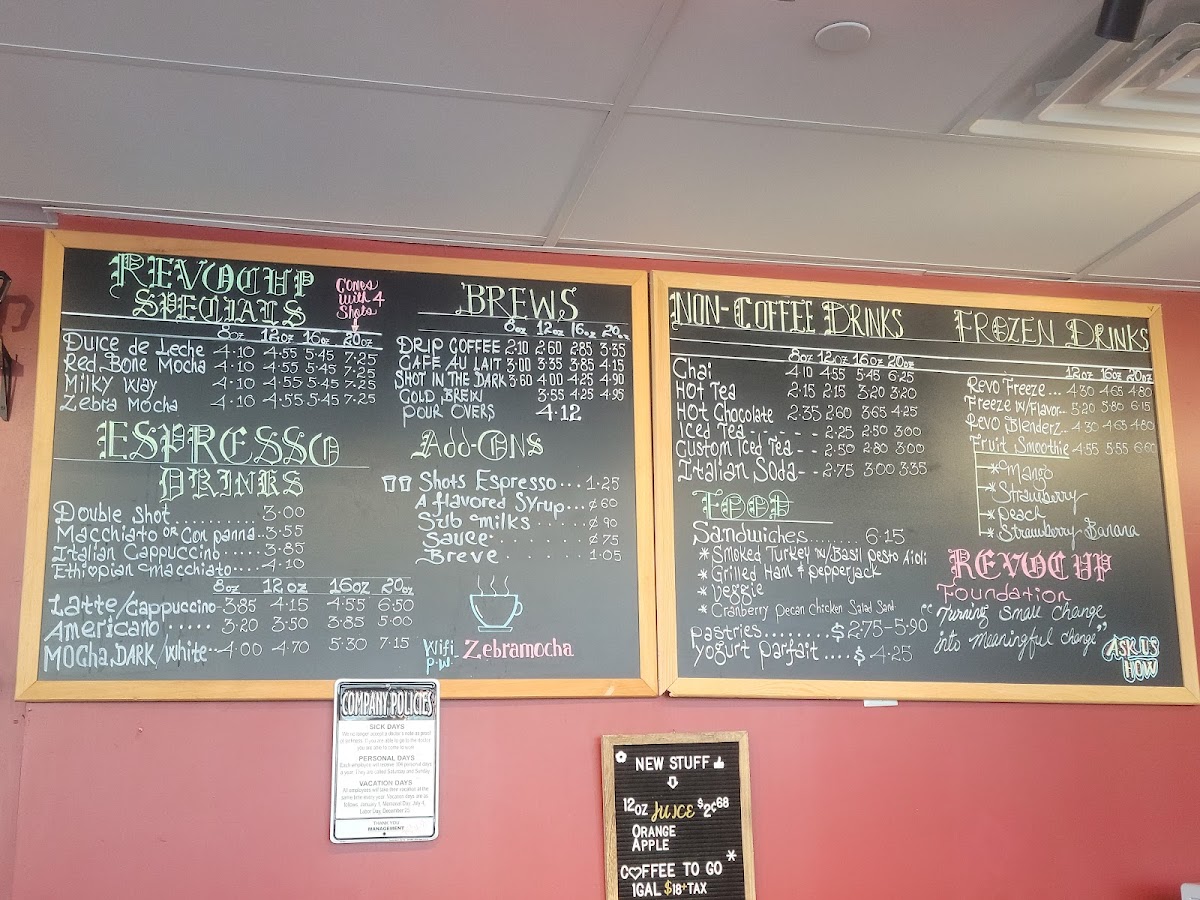 REVOCUP
SPECIALS
Comes
with 4
Shots
8oz 12oz 16oz 20oz
Dulce de Leche 4.10 4.55 5.45 7.25
Red Bone Mocha 4.10 4.55 5.45 7.25
Milky Way 4.10 4.55 5.45 7.25
Zebra Mocha 4.10 4.55 5.45 7.25
ESPRESSO
DRINKS
Double Shot .......... 3.00
Macchiato OR Con panna.. 3.55
Italian Cappuccino ..... 3.85
Ethiopian Macchiato.... 4.10
8oz 12oz 16oz 20oz
Latte/Cappuccino 3.85 4.15 4.55 6.50
Americano ..... 3.20 3.50 3.85 5.00
MOCha, DARK/White.. 4.00 4.70 5.30 7.15
BREWS
8oz 12oz 16oz 20oz
DRIP COFFEE 2.10 2.60 2.85 3.55
CAFE AU LAIT 3.00 3.35 3.85 4.15
SHOT IN THE DARK 3.60 4.00 4.25 4.90
COLD BREW 3.55 4.25 4.95
POUR OVERS 4.12
Add-ONS
Shots Espresso... 1.25
A flavored Syrup... ¢60
Sub Milks ....... ¢90
Sauce ........ ¢75
Breve ......... 1.05
Wifi
P.W- Zebramocha
NON-COFFEE DRINKS
8oz 12oz 16oz 20oz
Chai 4.10 4.55 5.45 6.25
Hot Tea 2.15 2.15 3.20 3.20
Hot Chocolate 2.35 2.60 3.65 4.25
Iced Tea - - - - 2.25 2.50 3.00
Custom Iced Tea - - 2.50 2.80 3.00
Italian Soda - - 2.75 3.00 3.35
FOOD
Sandwiches........ 6.15
* Smoked Turkey w/Basil pesto Aioli
* Grilled Ham & Pepperjack
* Veggie
* Cranberry Pecan Chicken Salad Sand
pastries......... $2.75-5.90
yogurt parfait .... $ 4.25
FROZEN DRINKS
12oz 16oz 20oz
Revo Freeze... 4.30 4.65 4.80
Freeze w/Flavor.. 5.20 5.80 6.15
Revo Blenderz.. 4.30 4.65 4.80
Fruit Smoothie 4.55 5.55 6.60
* Mango
* Strawberry
* Peach
* Strawberry-Banana
REVOCUP
Foundation
"Turning small change
into meaningful change"
ASK US
HOW
COMPANY POLICIES
SICK DAYS
We no longer accept a doctor's note as proof
of sickness. If you are able to go to the doctor
you are able to come to work
PERSONAL DAYS
Each employee will receive 104 personal days
a year. They are called Saturday and Sunday
VACATION DAYS
All employees will take their vacation at the
same time every year. Vacation days are as
follows: January 1, Memorial Day, July 4,
Labor Day, December 25
THANK YOU
MANAGEMENT
NEW STUFF
12OZ JUICE $2¢68
ORANGE
APPLE
COFFEE TO GO *
1GAL $18+TAX